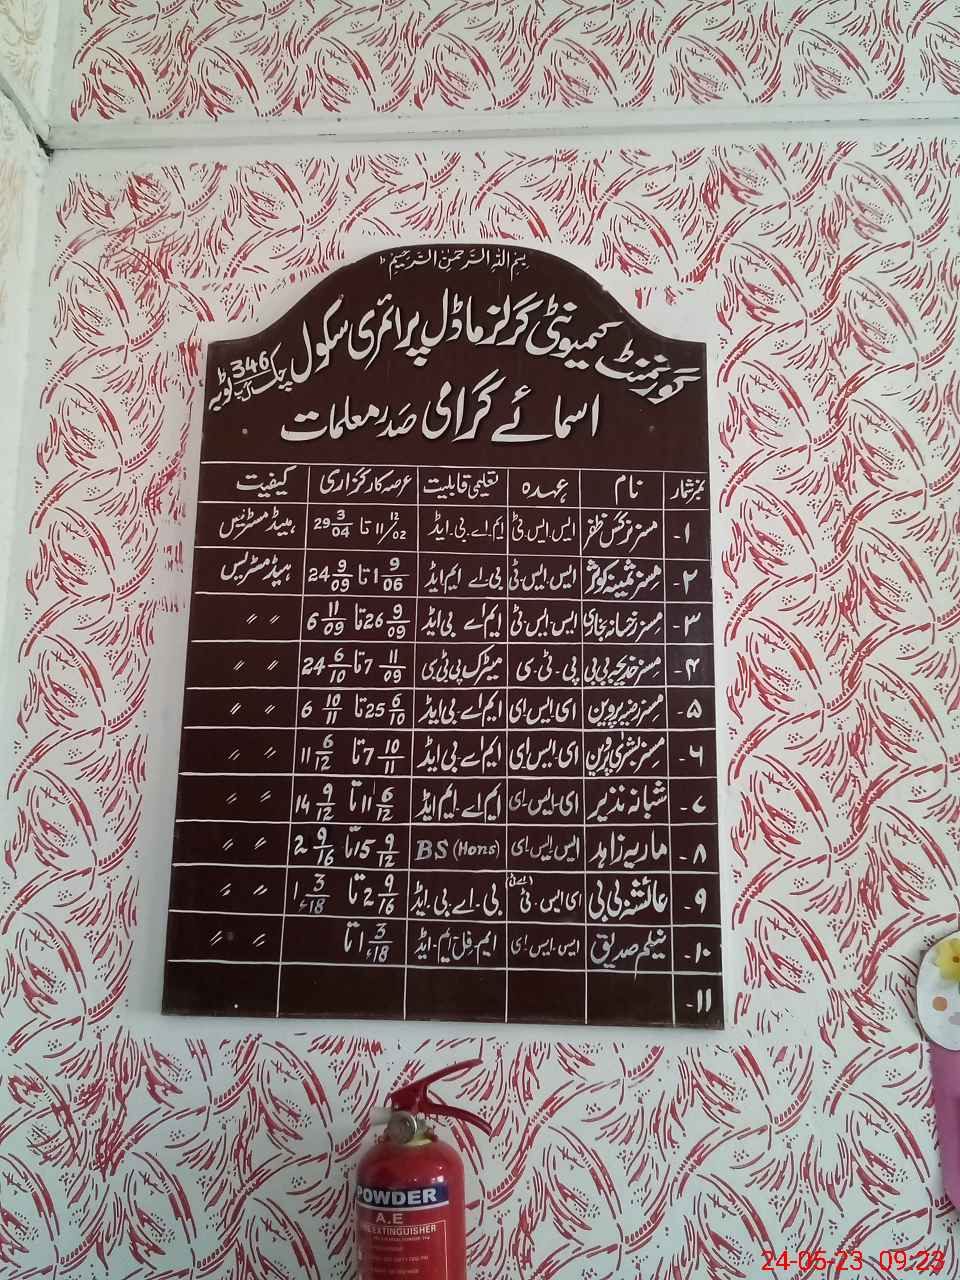 بسم اللہ الرحمن الرحیم
گورنمنٹ کمیونٹی گرلز ماڈل پرائمری سکول چک 346 ٹوبہ
اسمائے گرامی صدر معلمات
نمبر شمار نام عہدہ تعلیمی قابلیت عرصہ کار گزاری کیفیت
۱- مسز نرگس ظفر ایس ایس ٹی ایم اے۔ بی۔ ایڈ 11 12/02 تا 29 3/04 ہیڈ مسٹریس
۲- مسز ثمینہ کوثر ایس۔ایس۔ٹی بی اے ایم ایڈ 1 9/06 تا 24 9/09 ہیڈ مسٹریس
۳- مسز رخسانہ بخاری ایس۔ایس۔ٹی ایم اے بی ایڈ 26 9/09 تا 6 11/09 〃 〃
۴- مسز خدیجہ بی بی پی۔ٹی۔سی میٹرک پی ٹی سی 7 11/09 تا 24 6/10 〃 〃
۵- مسز پروین ای ایس ای ایم اے بی ایڈ 25 6/10 تا 6 10/11 〃 〃
۶- مسز بشریٰ پروین ای۔ایس۔ای ایم اے بی ایڈ 7 10/11 تا 11 6/12 〃 〃
۷- شبانہ نذیر ای۔ایس۔ای ایم اے۔ ایم ایڈ 11 6/12 تا 14 9/12 〃 〃
۸- ماریہ زاہد ایس ایس ای BS (Hons) 15 9/12 تا 2 9/16 〃 〃
۹- عائشہ بی بی ای ایس۔ٹی بی۔اے۔بی۔ایڈ 2 9/16 تا 1 3/18ء 〃 〃
۱۰- نیلم صدیق ایس۔ایس۔ای ایم۔فل ایم۔ایڈ 1 3/18ء تا 〃 〃
۱۱-
POWDER
A.E
FIRE EXTINGUISHER
24-05-23 09:23